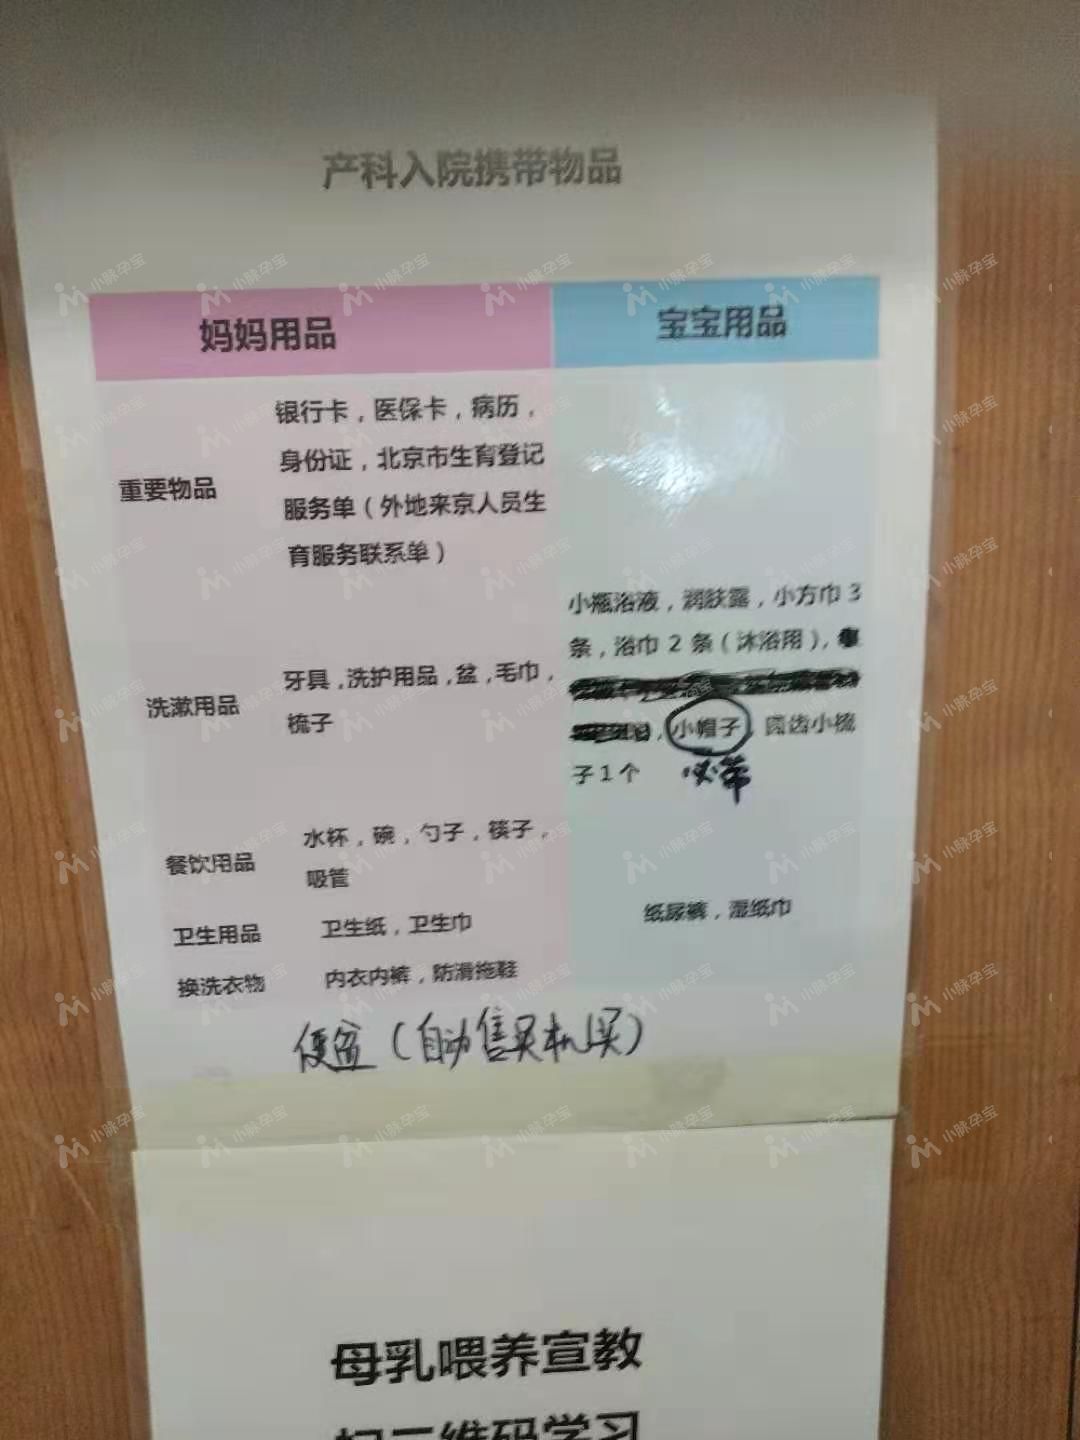 产科入院携带物品
妈妈用品
宝宝用品
重要物品
银行卡，医保卡，病历，
身份证，北京市生育登记
服务单（外地来京人员生
育服务联系单）
洗漱用品
牙具，洗护用品，盆，毛巾，
梳子
小瓶浴液，润肤露，小方巾 3
条，浴巾 2 条（沐浴用），
，小帽子，圆齿小梳
子 1 个
必带
餐饮用品
水杯，碗，勺子，筷子，
吸管
卫生用品
卫生纸，卫生巾
纸尿裤，湿纸巾
换洗衣物
内衣内裤，防滑拖鞋
便盆（自动售买机买）
母乳喂养宣教
扫二维码学习
小脉孕宝